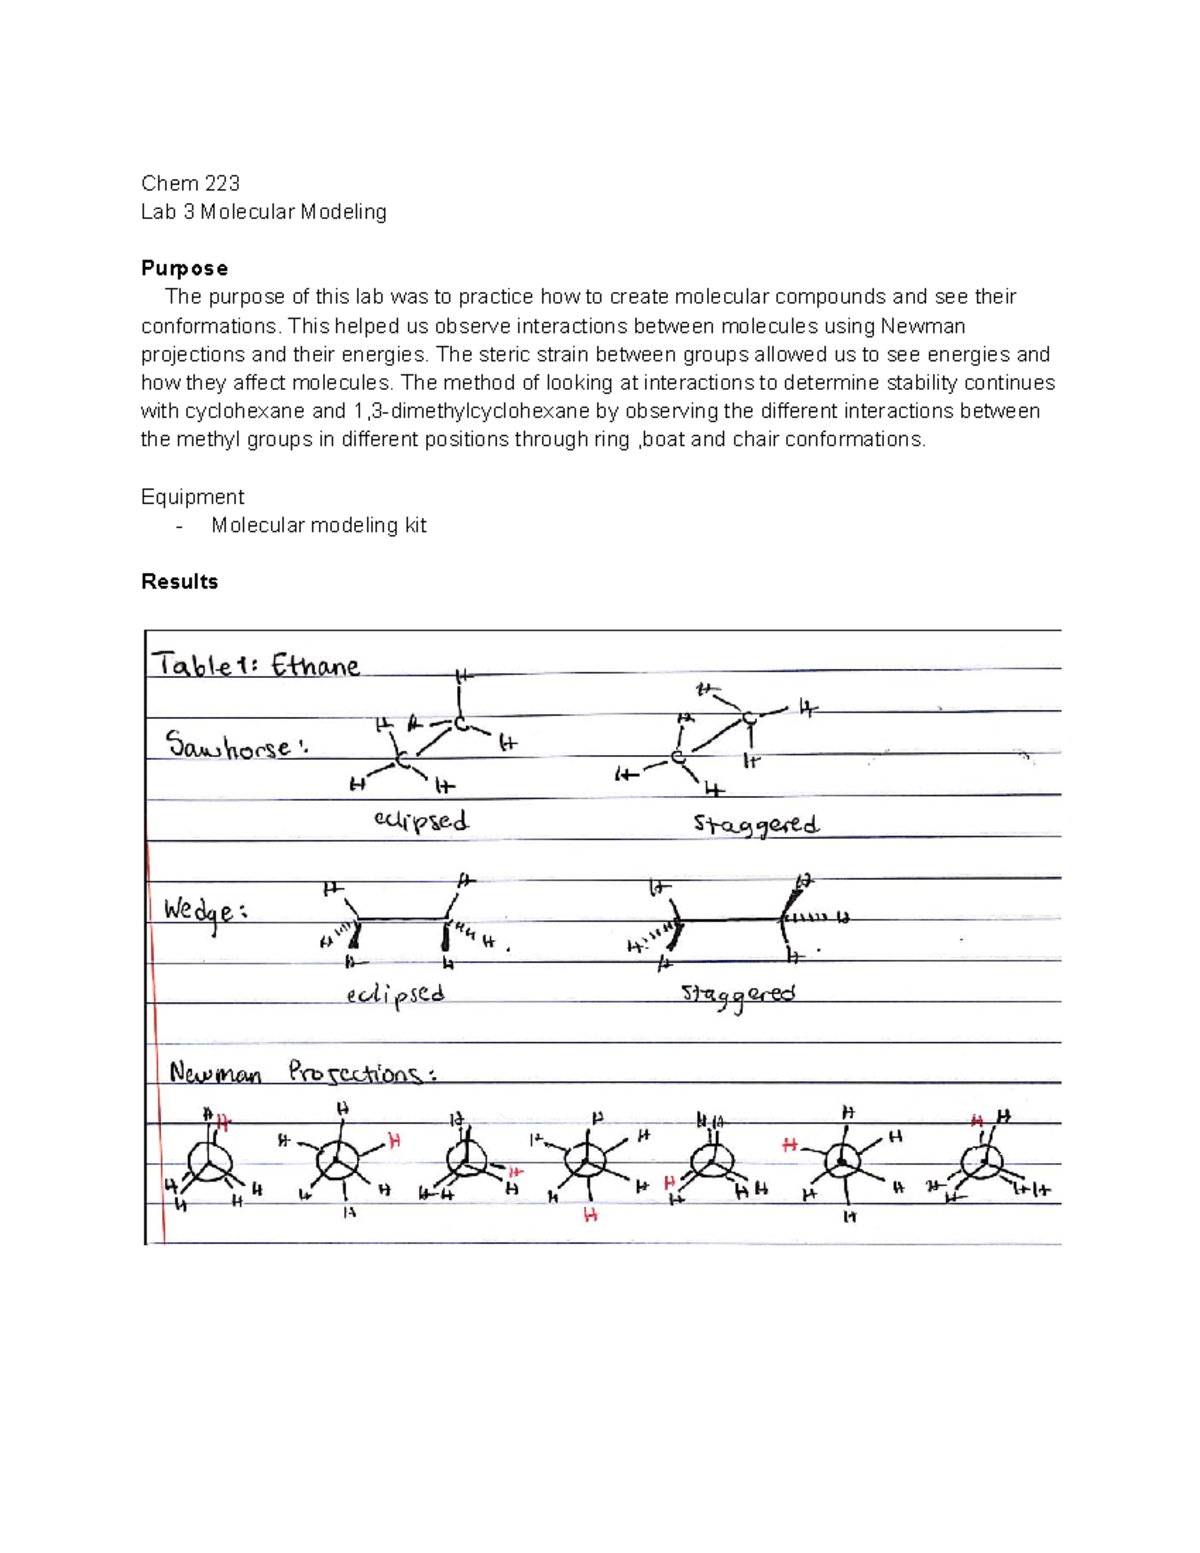 Chem 223
Lab 3 Molecular Modeling
Purpose
The purpose of this lab was to practice how to create molecular compounds and see their
conformations. This helped us observe interactions between molecules using Newman
projections and their energies. The steric strain between groups allowed us to see energies and
how they affect molecules. The method of looking at interactions to determine stability continues
with cyclohexane and 1,3-dimethylcyclohexane by observing the different interactions between
the methyl groups in different positions through ring ,boat and chair conformations.
Equipment
- Molecular modeling kit
Results
Table 1: Ethane
H H
H H C H
Sawhorse: H C H
C C H
H H H H
eclipsed staggered
H H H H
Wedge: H H
H H H
H H H H
eclipsed staggered
Newman Projections:
H H H H H H H H H H H
H H H H H H
H H H H H H H H H H H H H H H
H H H H H H H H H H
H H H